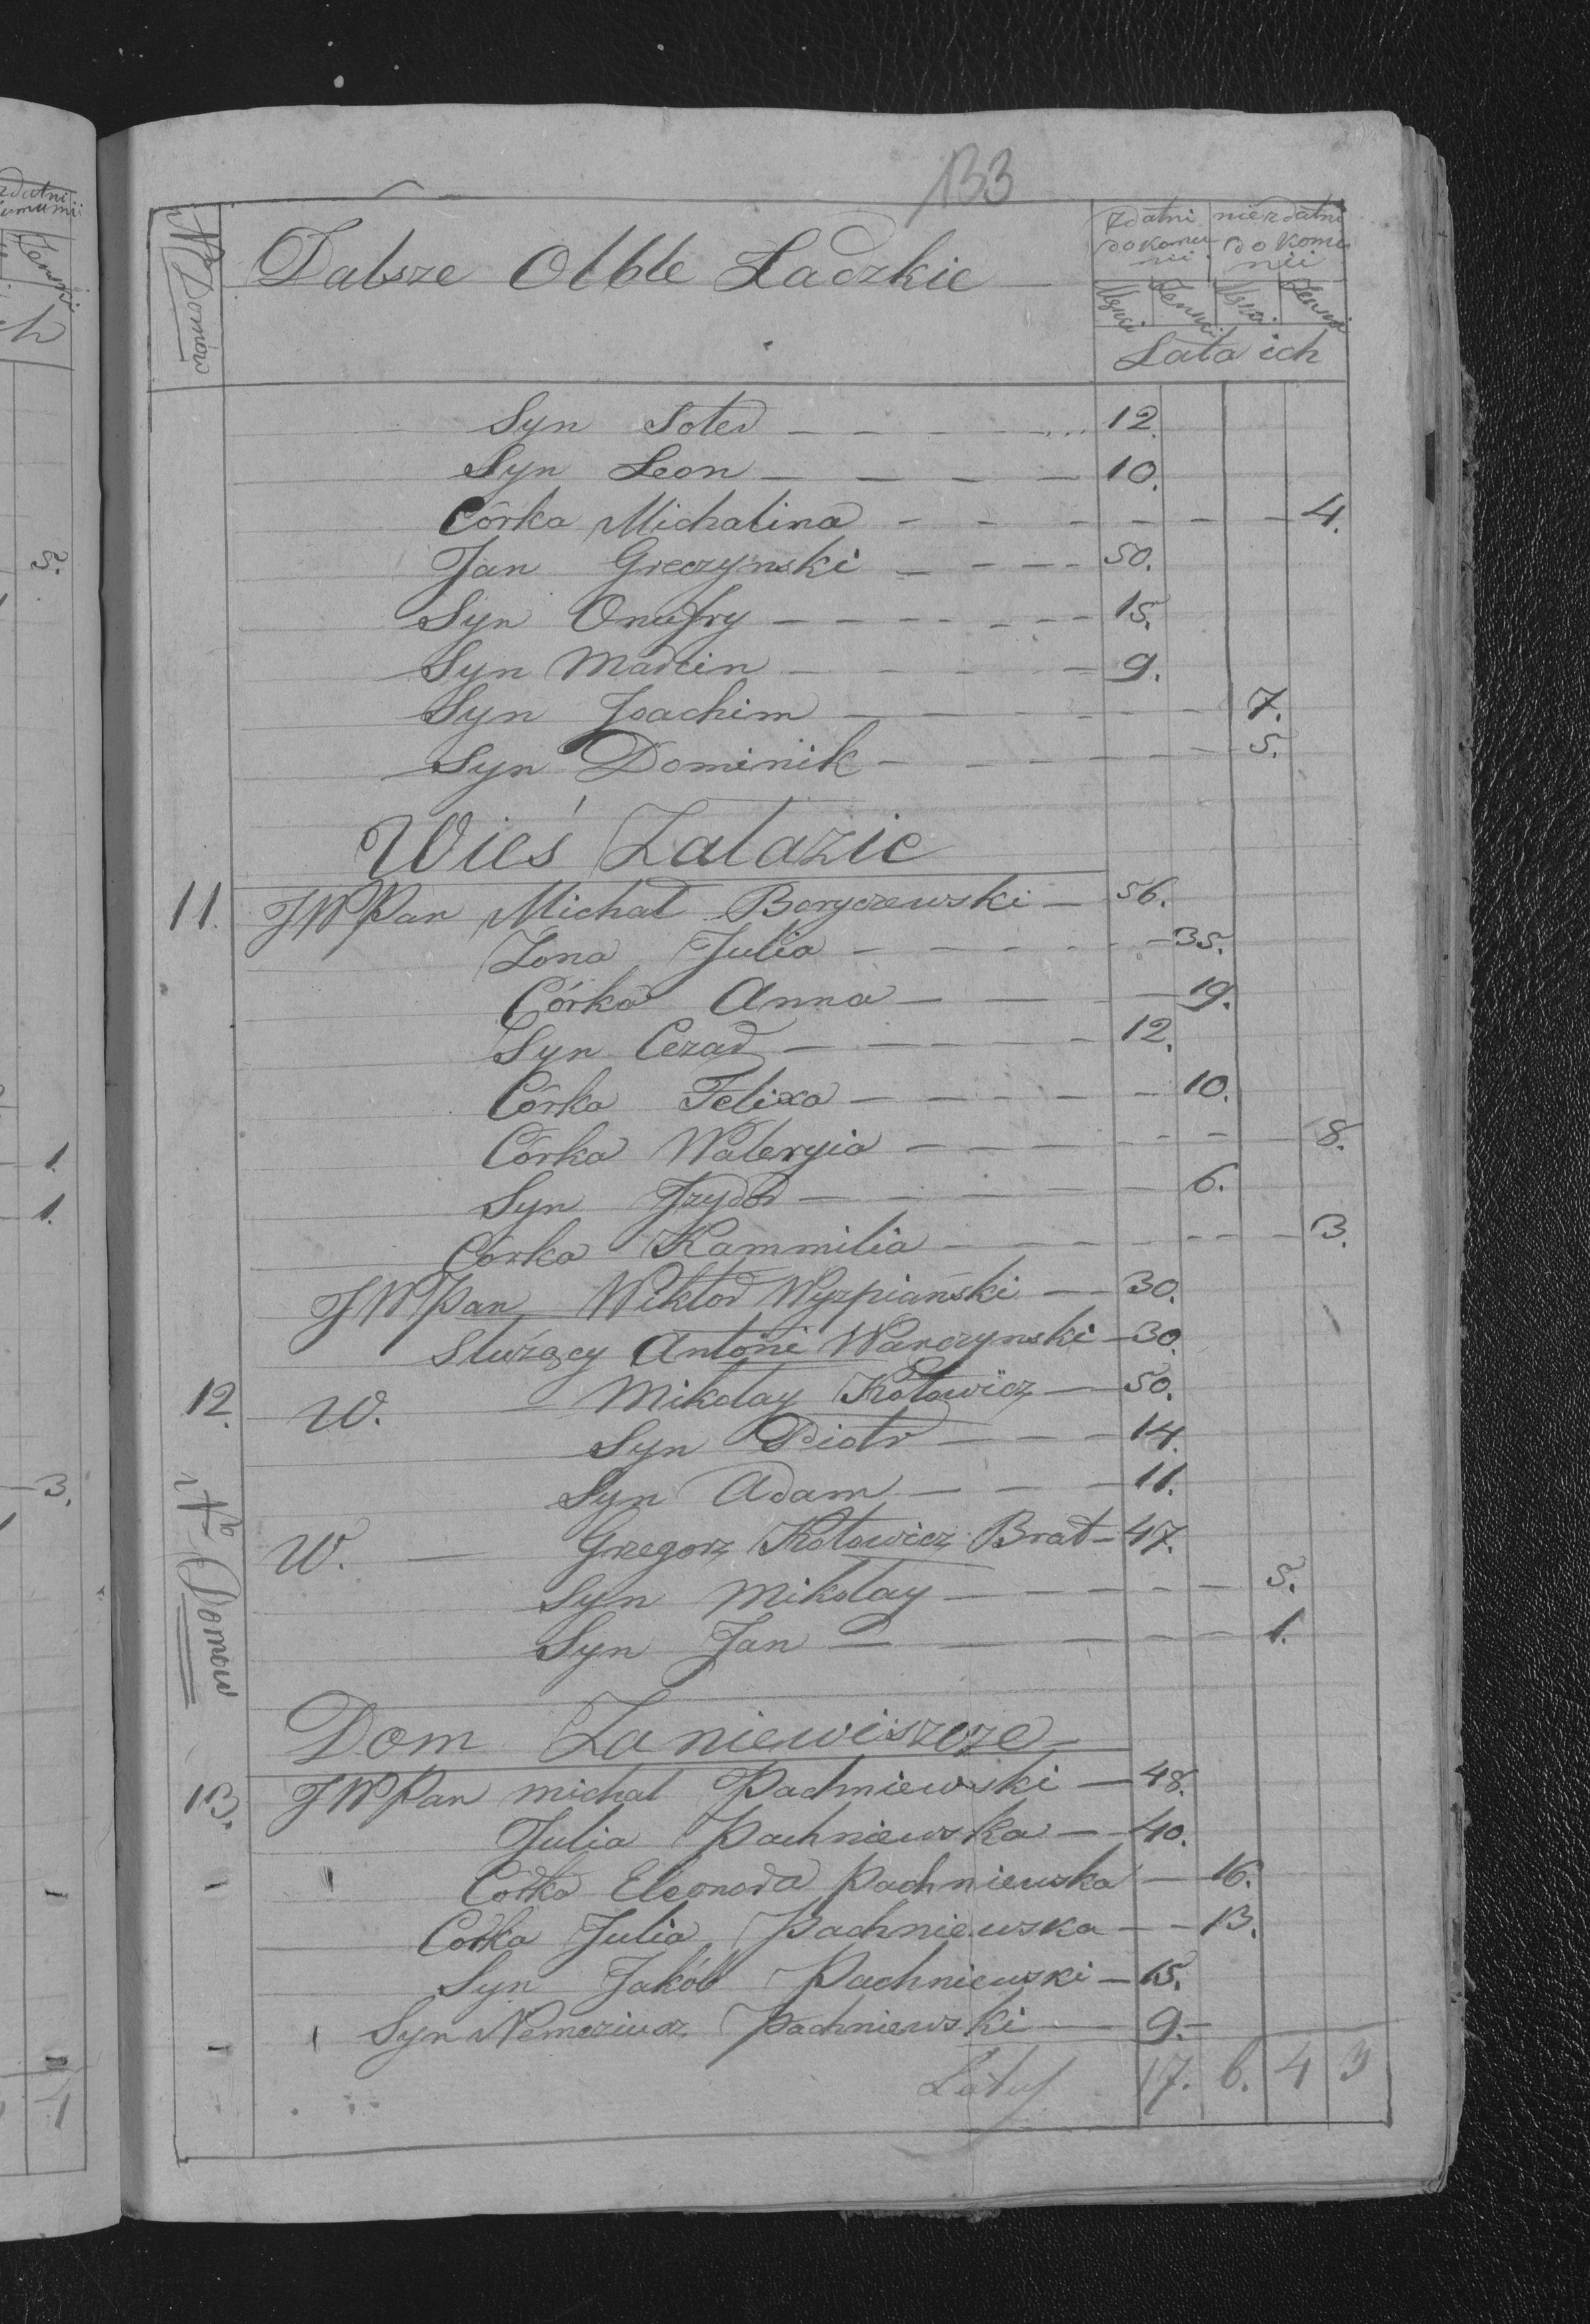 133
N Domów
Dalsze Olble Ladzkie
Zdatni do Komunii
niezdatni do Komunii
Męzci Żenscі Męzci Żenscі
Lata ich
Syn Soter 12.
Syn Leon 10.
Córka Michalina 4.
Jan Greczynski 50.
Syn Onufry 15.
Syn Marcin 9.
Syn Joachim 7.
Syn Dominik 5.
Wieś Zalazie
11. JWPan Michał Boryczewski 56.
Zona Julia 35.
Córka Anna 19.
Syn Cezar 12.
Córka Felixa 10.
Córka Waleryia 8.
Syn Jzydor 6.
Córka Kammilia 3.
JWPan Wiktor Wyzpiański 30.
Służący Antoni Warczynski 30
12. W. Mikołay Kotowicz 50.
Syn Piotr 14.
Syn Adam 11.
W. Grzegorz Kotowicz Brat 47.
Syn Mikołay 5.
Syn Jan 1.
N Domow
Dom Zaniewiszcze
13. JWPan michał Pachniewski 48.
Julia Pachniewska 40.
Corka Eleonora Pachniewska 16.
Corka Julia Pachniewska 13.
Syn Jakób Pachniewski 15.
Syn Nemeziusz Pachniewski 9.
Latus 17. 6. 4 3